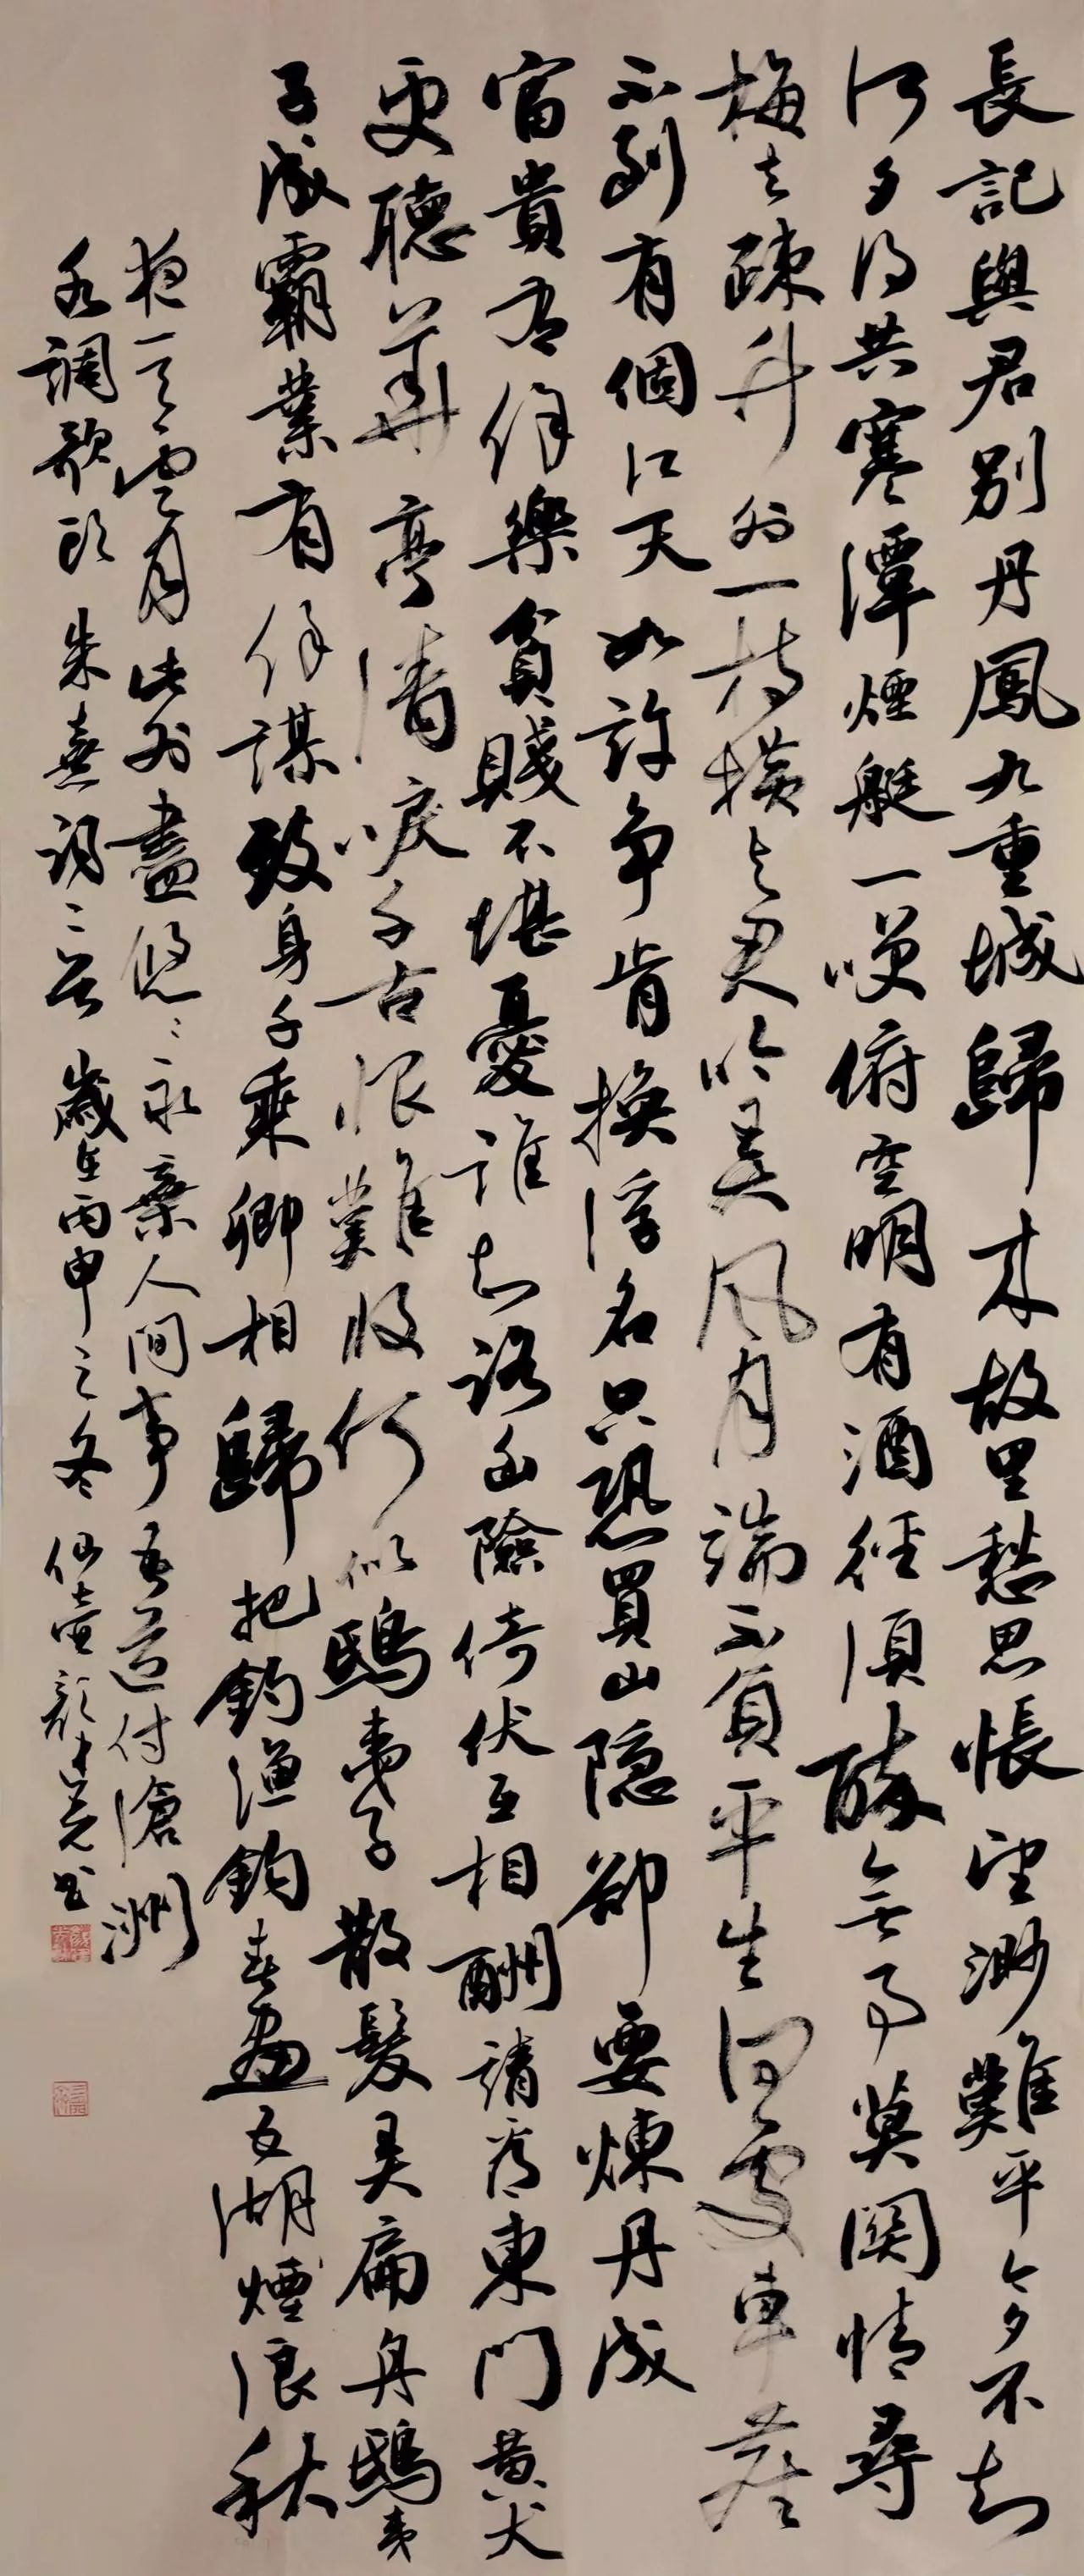 長記與君別丹鳳九重城歸来故里愁思悵望渺難平今夕不知
何夕得共寒潭煙艇一笑俯空明有酒徑須醉無事莫關情尋
梅去疎竹外一枝橫與君吟弄風月端不負平生何處車塵
不到有個江天如許争肯換浮名只恐買山隐卻要煉丹成
富貴有餘樂貧賤不堪憂誰知路幽險倚伏互相酬請看東門黃犬
更聽華亭清唳千古恨難收何似鴟夷子散髮弄扁舟鴟夷
子成霸業有餘謀致身千乘卿相歸把釣漁鈎春晝五湖煙浪秋
夜一天雲月此外盡悠々永棄人間事吾道付滄洲
水調歌頭 朱熹詞二首 歲在丙申之冬 仙壺 書